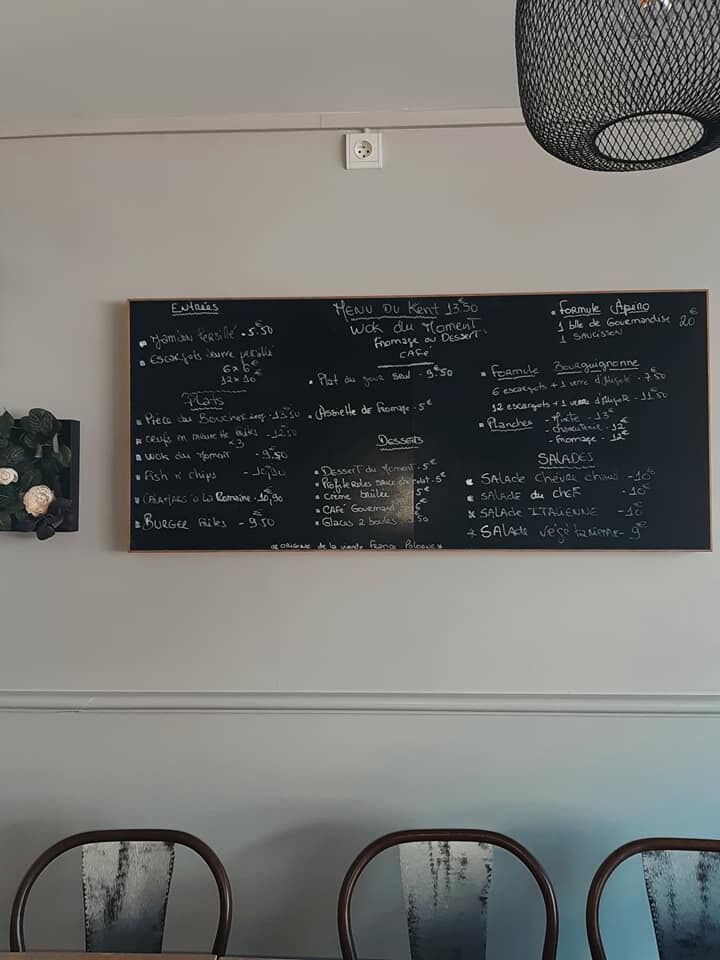 Entrées
Jambon Persillé - 5.50
Escargots beurre persillé
6 x 6€
12 x 10€
Plats
Pièce du Boucher - 13.50
oeufs en meurette frites - 12.50
x3
Wok du Moment - 9.50
Fish n' chips - 10,90
à la Romaine - 10,90
BURGER Frites - 9.50
MENU DU Kent 13€50
Wok du Moment
Fromage ou Dessert
CAFé
Plat du jour seul - 9€50
Assiette de Fromage - 5€
Desserts
Dessert du Moment - 5€
Profiteroles sauce chocolat - 5€
Crème brûlée 5€
CAFé Gourmand 6€
Glaces 2 boules 50
ORIGINE de la viande France Pologne
Formule Apéro
1 btle de Gourmandise 20€
1 SAUCISSON
Formule Bourguignonne
6 escargots + 1 verre d'Aligoté - 7€50
12 escargots + 1 verre d'Aligoté - 11€50
Planches - Mixte - 13€
- charcuterie - 12€
- fromage - 12€
SALADES
SALADE Chèvre chaud - 10€
SALADE du cheF - 10€
SALADE ITALIENNE - 10€
SALADE végétarienne - 9€